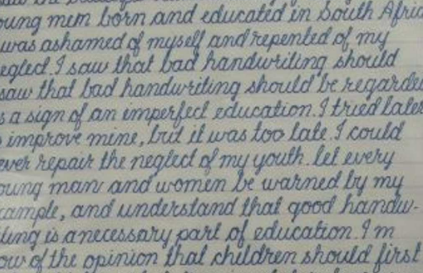 oung men born and educated in South Afric
was ashamed of myself and repented of my
eglect I saw that bad handwriting should
saw that bad handwriting should be regarde
s a sign of an imperfect education. I tried later
improve mine, but it was too late. I could
ever repair the neglect of my youth. let every
oung man and women be warned by my
xample, and understand that good handw-
iting is a necessary part of education. I m
ow of the opinion that children should first